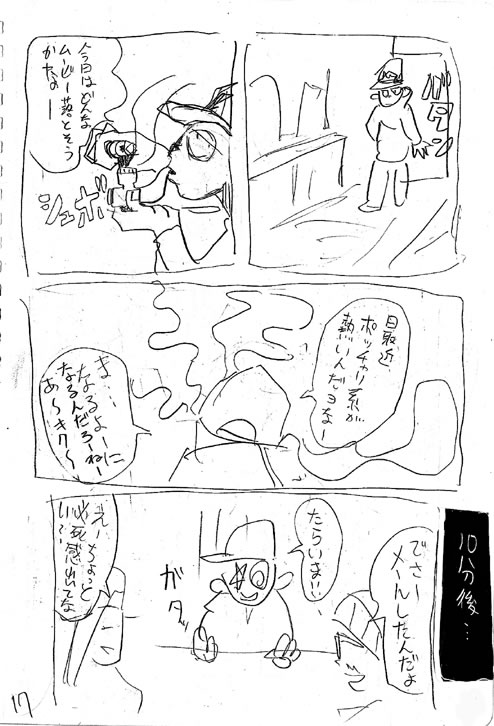 バタン
今日はどんな
ムービー落とそう
かなぁー
シュボ
最近
ポッチャリ系が
熱いんだヨなー
ま…
なるよーに
なるんだろーねー
あ〜キク〜
10分後…
でさー
メールしたんだよ
たらいまい
ガタッ
えーちょっと
必死感出てな
い?
17